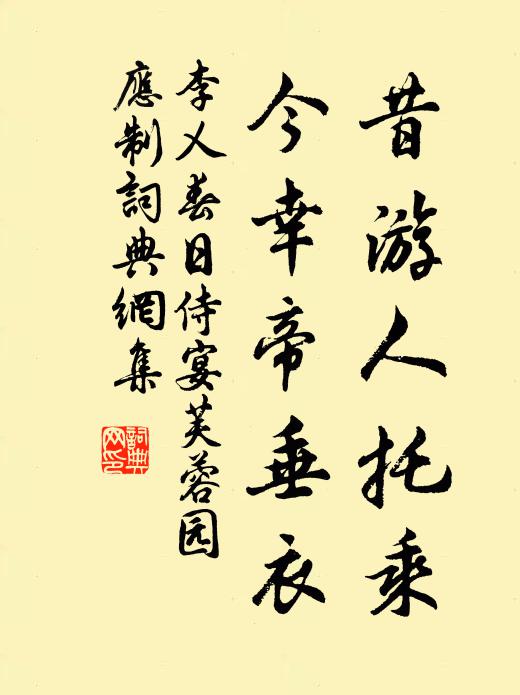 昔游人托乘
今幸帝垂衣
李乂春日侍宴芙蓉园
應制詞典網集
詞典
网印